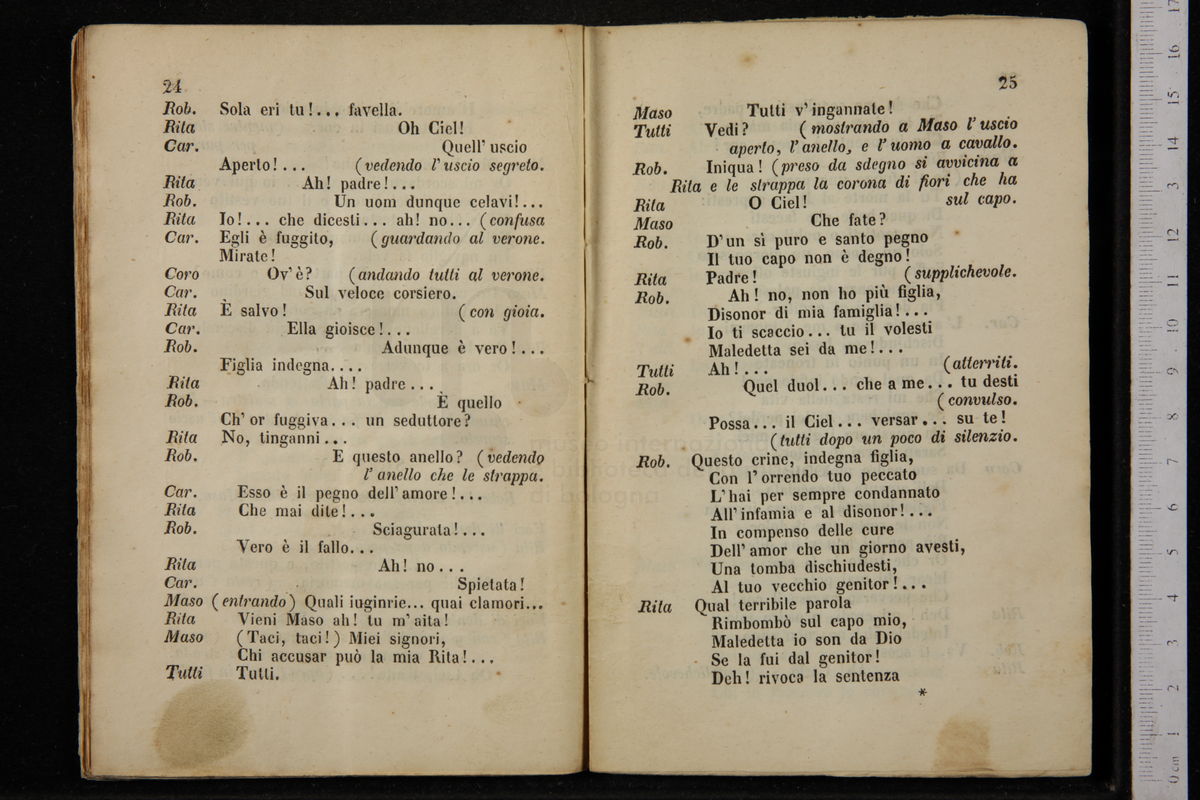 24
Rob. Sola eri tu!... favella.
Rita Oh Ciel!
Car. Quell' uscio
Aperto!... (vedendo l'uscio segreto.
Rita Ah! padre!...
Rob. Un uom dunque celavi!...
Rita Io!... che dicesti... ah! no... (confusa
Car. Egli è fuggito, (guardando al verone.
Mirate!
Coro Ov'è? (andando tutti al verone.
Car. Sul veloce corsiero.
Rita È salvo! (con gioia.
Car. Ella gioisce!...
Rob. Adunque è vero!...
Figlia indegna....
Rita Ah! padre...
Rob. È quello
Ch'or fuggiva... un seduttore?
Rita No, tinganni...
Rob. E questo anello? (vedendo
l'anello che le strappa.
Car. Esso è il pegno dell'amore!...
Rita Che mai dite!...
Rob. Sciagurata!...
Vero è il fallo...
Rita Ah! no...
Car. Spietata!
Maso (entrando) Quali iuginrie... quai clamori...
Rita Vieni Maso ah! tu m'aita!
Maso (Taci, taci!) Miei signori,
Chi accusar può la mia Rita!...
Tutti Tutti.
25
Maso Tutti v'ingannate!
Tutti Vedi? (mostrando a Maso l'uscio
aperto, l'anello, e l'uomo a cavallo.
Rob. Iniqua! (preso da sdegno si avvicina a
Rita e le strappa la corona di fiori che ha
Rita O Ciel! sul capo.
Maso Che fate?
Rob. D'un sì puro e santo pegno
Il tuo capo non è degno!
Rita Padre! (supplichevole.
Rob. Ah! no, non ho più figlia,
Disonor di mia famiglia!...
Io ti scaccio... tu il volesti
Maledetta sei da me!...
Tutti Ah!... (atterriti.
Rob. Quel duol... che a me... tu desti
(convulso.
Possa... il Ciel... versar... su te!
(tutti dopo un poco di silenzio.
Rob. Questo crine, indegna figlia,
Con l'orrendo tuo peccato
L'hai per sempre condannato
All'infamia e al disonor!...
In compenso delle cure
Dell'amor che un giorno avesti,
Una tomba dischiudesti,
Al tuo vecchio genitor!...
Rita Qual terribile parola
Rimbombò sul capo mio,
Maledetta io son da Dio
Se la fui dal genitor!
Deh! rivoca la sentenza
*